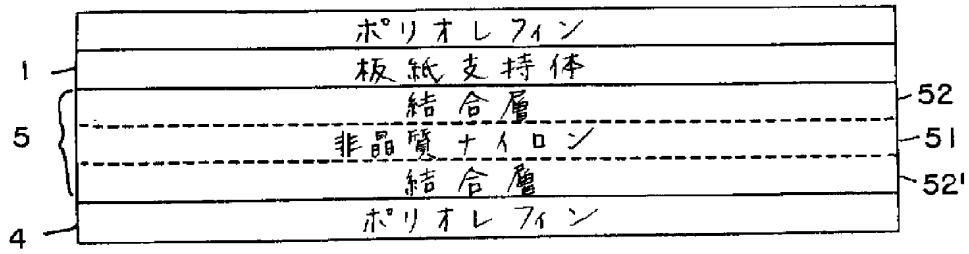 ポリオレフィン
1 板紙支持体
結合層 52
5 非晶質ナイロン 51
結合層 52'
4 ポリオレフィン